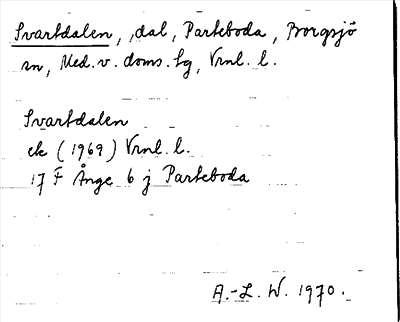 Svartdalen, dal, Parteboda, Borgsjö
sn, Med. v. doms. tg, Vrnl. l.
Svartdalen
ek (1969) Vrnl. l.
17 F Ånge 6 j Parteboda
A.-L. W. 1970.